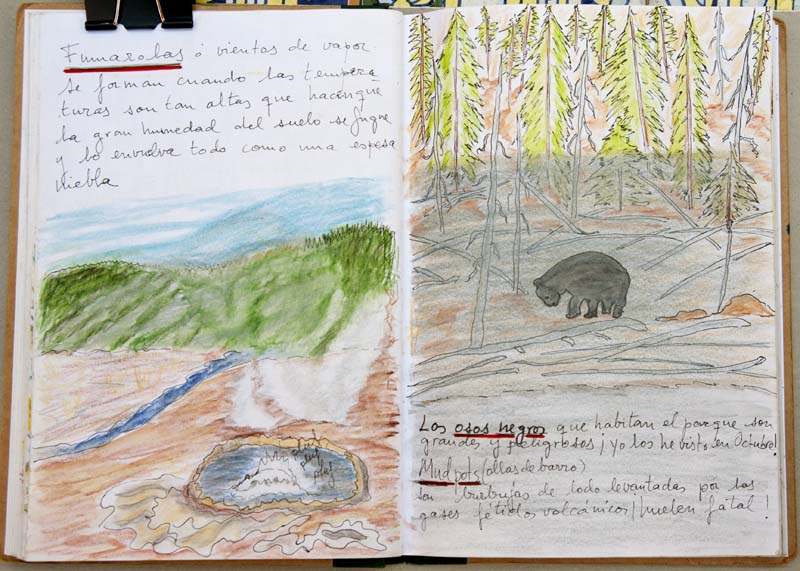 Fumarolas ó vientos de vapor
se forman cuando las tempera
turas son tan altas que hacen que
la gran humedad del suelo se fugue
y lo envuelva todo como una espesa
niebla
plof
plof
plof
Los osos negros que habitan el parque son
grandes y peligrosos ¡yo los he visto, en Octubre!
Mudpots (ollas de barro)
son burbujas de lodo levantadas por los
gases fétidos volcánicos ¡huelen fatal!